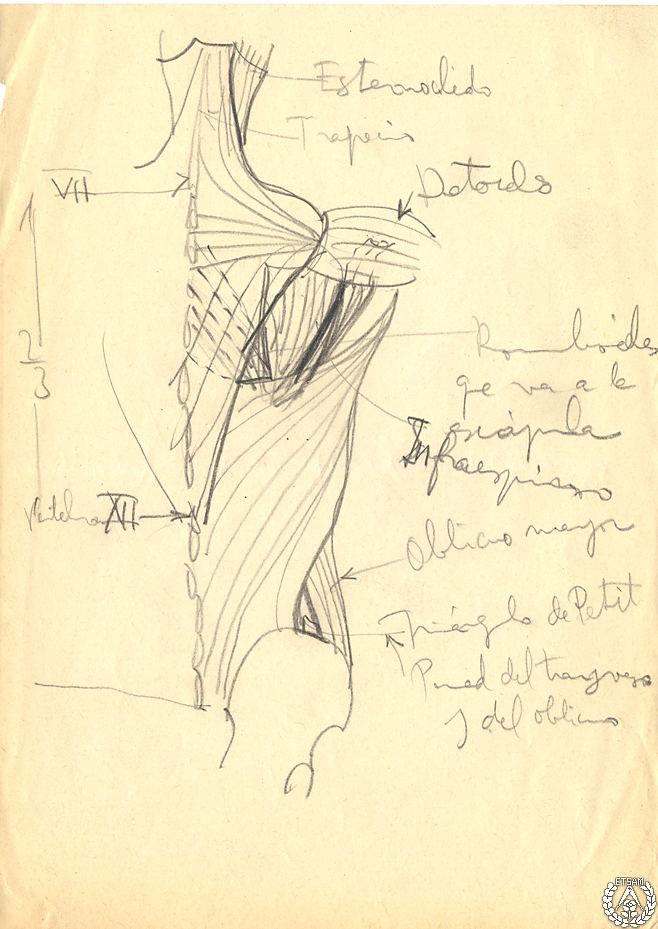 Esternocleido
Trapecio
VII
Detoids
2
3
Romboides
que va a la
escápula
Infraespinoso
Vertebra XII
Oblicuo mayor
Triángulo de Petit
Pared del transverso
y del oblicuo
ETSAM